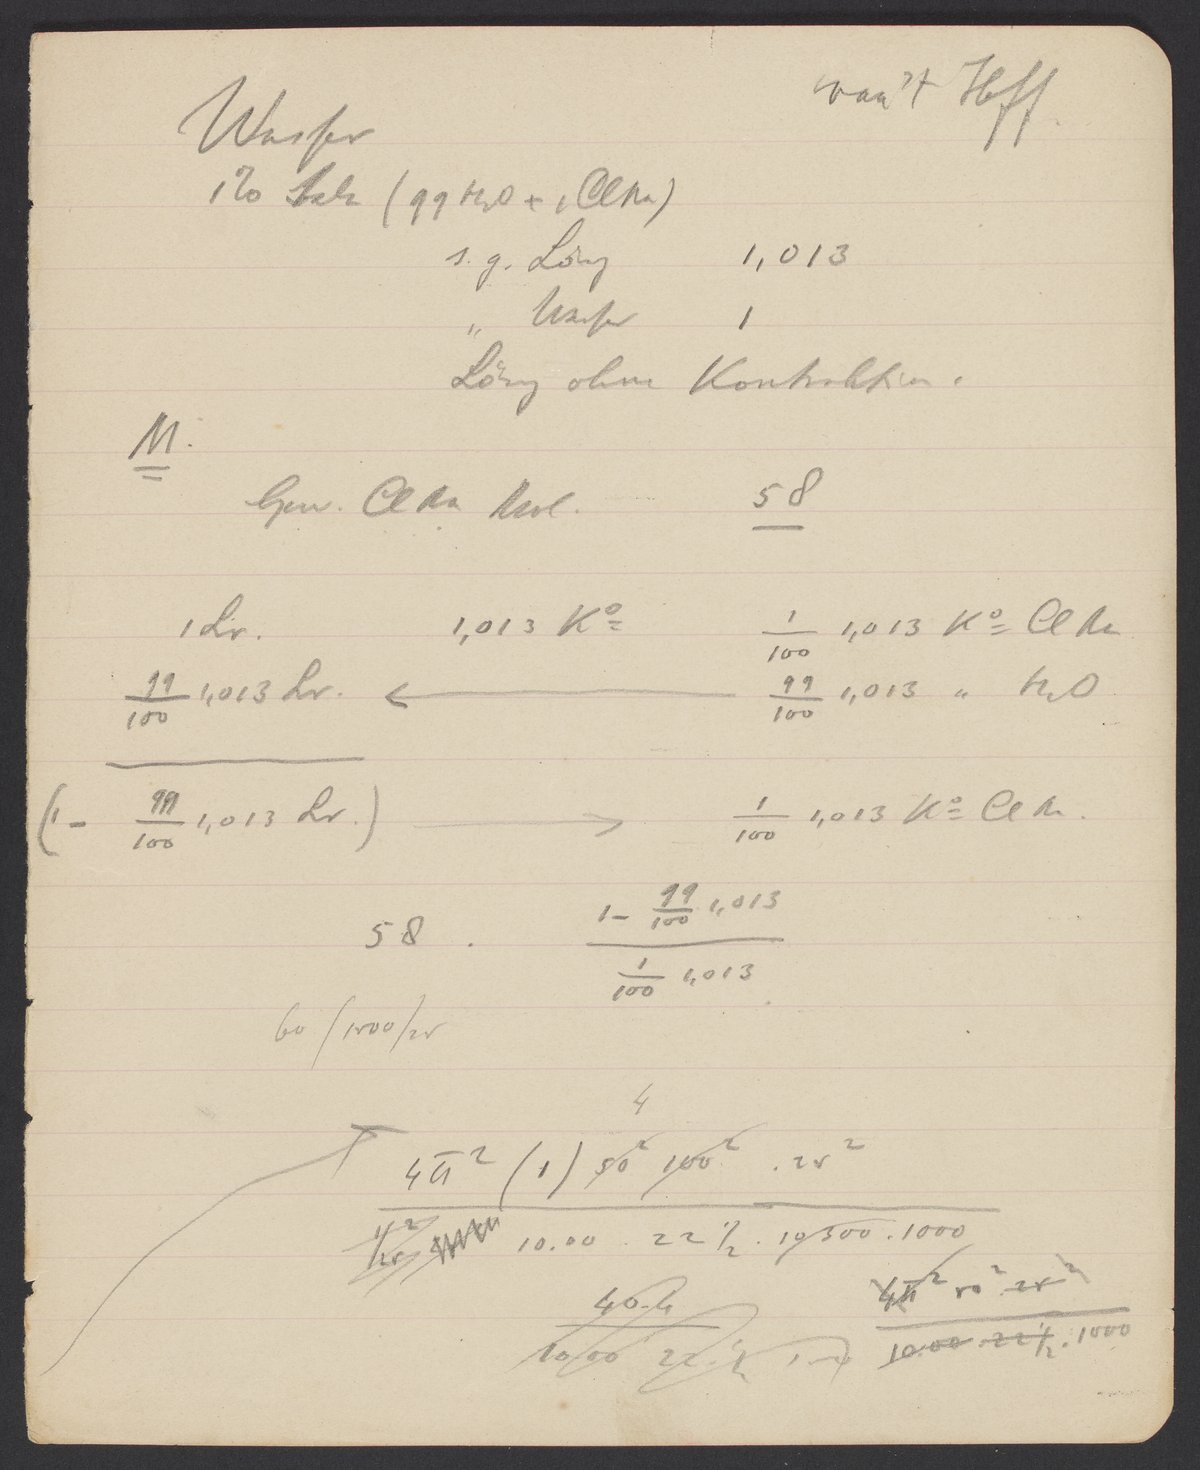 van't Hff
Wasser
1% Salz (99 H2O + 1 ClNa)
s. g. Lösng 1,013
„ Wasser 1
Lösng ohne Kontraktion.
M.
Gew. ClNa Mol. 58
1 Ltr. 1,013 Ko 1/100 1,013 Ko ClNa
99/100 1,013 Ltr. ← 99/100 1,013 „ H2O
(1 - 99/100 1,013 Ltr.) → 1/100 1,013 Ko ClNa.
58 . (1 - 99/100 1,013) / (1/100 1,013)
4
4π² (1) 50² 100² . 25²
10.00 22 1/2 . 10300 . 1000
40.4
10.00 22 1/2
4π² 50² 25²
10.00 . 22 1/2 . 1000